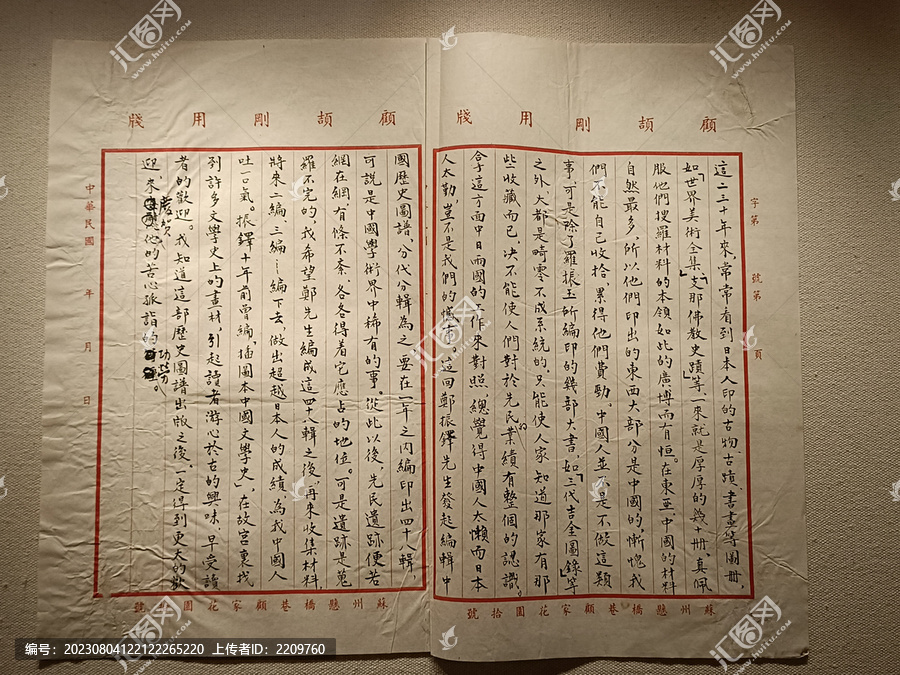 顧頡剛用牋
字第　號第　頁
這二三十年來，常常看到日本人印的古物、古蹟、書畫等圖册，
如「世界美術全集」、「支那佛教史蹟」等，一來就是厚厚的幾十册，真佩
服他們搜羅材料的本領如此的廣博而有恒。在東亞，中國的材料
自然最多，所以他們印出的東西大部分是中國的，慚愧我
們不能自己收拾，累得他們費勁。中國人並不是不做這類
事，可是除了羅振玉所編印的幾部大書，如「三代吉金圖錄」等
之外，大都是畸零不成系統的，只能使人家知道那家有那
些收藏而已，决不能使人們對於先民的業績有整個的認識。
合了這方面中日兩國的工作來對照，總覺得中國人太懶而日本
人太勤，豈不是我們的慚事。這回鄭振鐸先生發起編輯中
蘇州懸橋巷顧家花園拾號
顧頡剛用牋
國歷史圖譜，分代分輯爲之，要在一年之内編印出四十八輯，
可說是中國學術界中稀有的事。從此以後，先民遺跡便若
網在綱，有條不紊，各各得着它應占的地位。可是遺跡是蒐
羅不完的，我希望鄭先生編成這四十八輯之後，再來收集材料，
將來二編，三編……編下去，做出超越日本人的成績，爲我中國人
吐一口氣。振鐸十年前曾編「插圖本中國文學史」，在故宮裏找
到許多文學史上的畫材，引起讀者游心於古的興味，早受讀
者的歡迎。我知道這部歷史圖譜出版之後，一定得到更大的歡
迎，來慶賀他的苦心孤詣的功勞。
中華民國　年　月　日
蘇州懸橋巷顧家花園　號
汇图网
www.huitu.com
编号：20230804122122265220 上传者ID：2209760